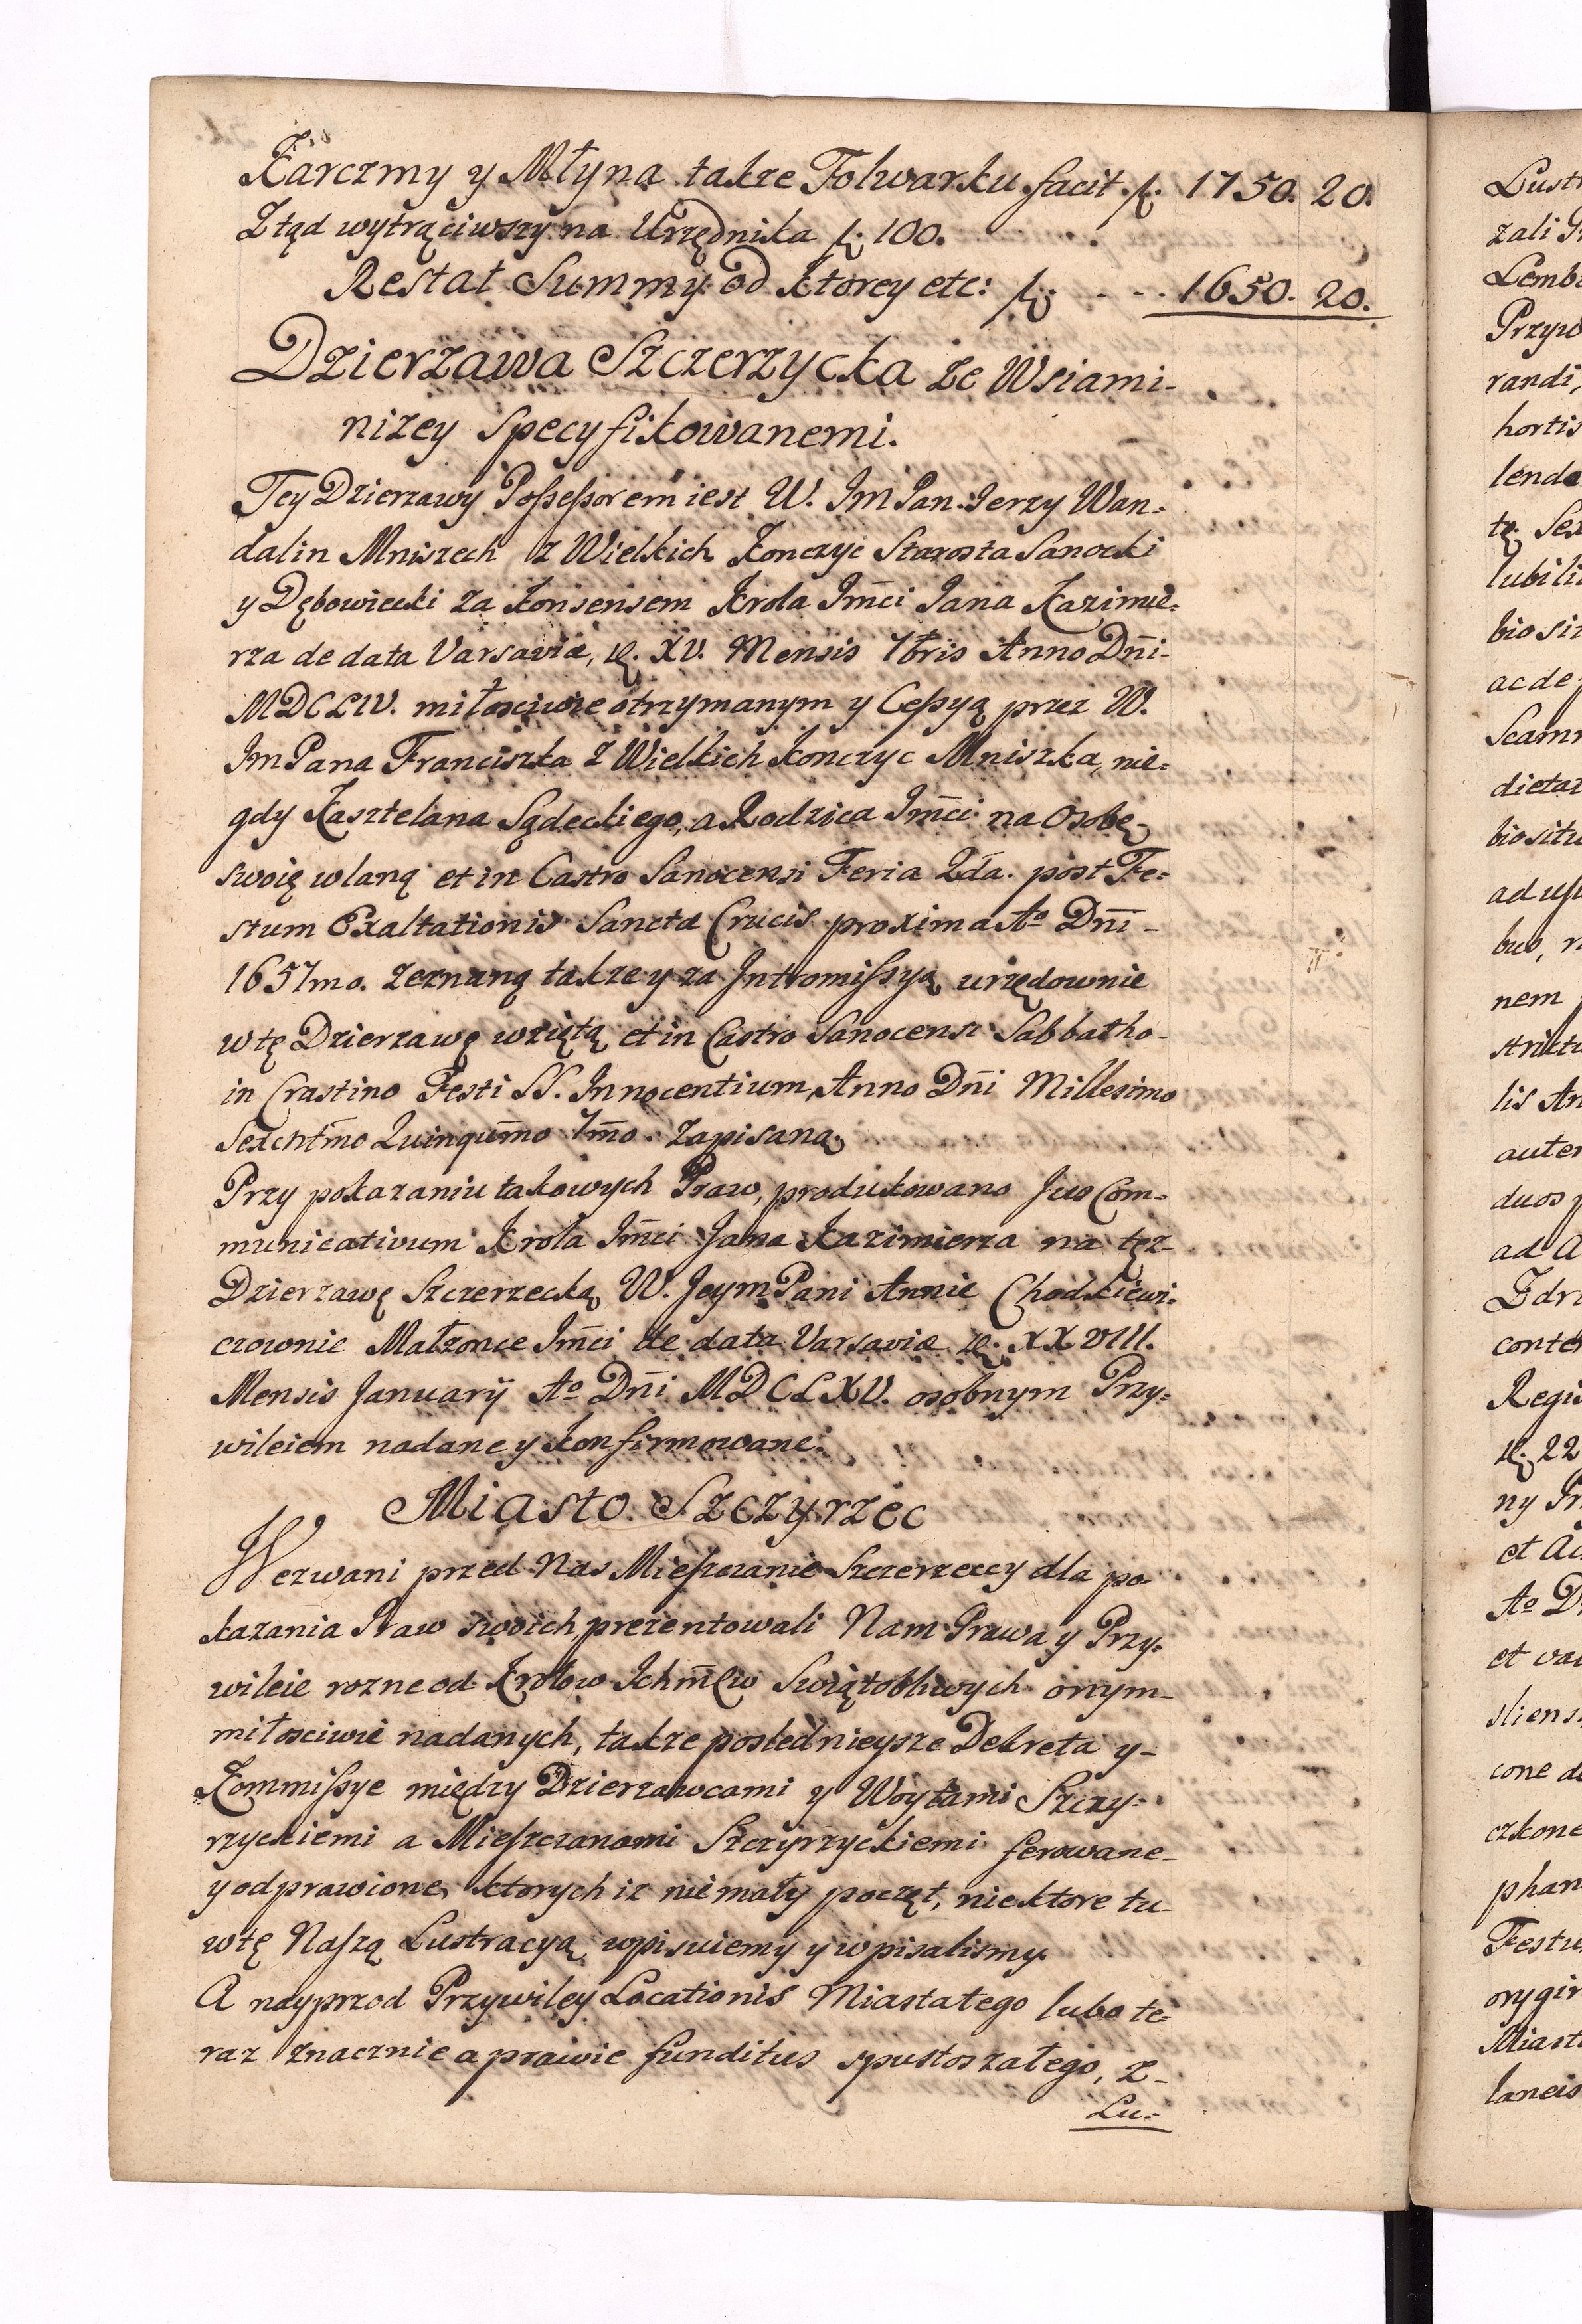 Karczmy y Młyna takze Folwarku facit fl. 1750. 20.
Ztąd wytrąciwszy na Urzędnika fl. 100.
Restat Summy od ktorey etc: fl. - - - 1650. 20.
Dzierzawa Szczerzycka ze Wsiami-
nizey specyfikowanemi.
Tey Dzierzawy Possessorem iest W. Im Pan Jerzy Wan-
dalin Mniszech z Wielkich Konczyc Starosta Sanocki
y Dębowiecki za Konsensem Krola Im̃ci Jana Kazimie-
rza de data Varsaviæ, d. XV. Mensis 7bris Anno Dñi-
MDCLIV. miłosciwie otrzymanym y Cessyą przez W.
Im Pana Franciszka z Wielkich Konczyc Mniszka, nie-
gdy Kasztelana Sądeckiego, a Rodzica Im̃ci na Osobę
swoię wlaną et in Castro Sanocensi Feria 2da. post Fe-
stum Exaltationis Sanctæ Crucis proxima Aº Dñi-
1657mo. zeznaną takze y za Intromissyą urzędownie
w tę Dzierzawę wziętą et in Castro Sanocensi Sabbatho-
in Crastino Festi SS. Innocentium Anno Dñi Millesimo
Sexcntm̃o Quinqum̃o 7m̃o. zapisaną
Przy pokazaniu takowych Praw, produkowano Jus Com-
municativum Krola Im̃ci Jana Kazimierza na tęz-
Dzierzawę Szczerzecką W. Jeym Pani Annie Chodkiewi-
czownie Małzonce Im̃ci de data Varsaviæ d. XXVIII.
Mensis Januarij Aº Dñi MDCLXV. osobnym Przy-
wileiem nadane y konfirmowane.
Miasto Szczyrzec
Wezwani przed Nas Mieszczanie Szczerzeccy dla po-
kazania Praw swoich prezentowali Nam Prawa y Przy-
wileie rozne od Krolow Ichm̃ćw Swiątobliwych onym-
miłosciwie nadanych, takze poslednieysze Dekreta y-
Kommissye między Dzierzawcami y Woytami Szczy-
rzyckiemi a Mieszczanami Szczyrzyckiemi ferowane-
y odprawione, ktorych iz nie mały poczęt, niektore tu-
w tę Naszą Lustracyą wpisuiemy y wpisalismy.
A nayprzod Przywiley Locationis Miasta tego lubo te-
raz znacznie a prawie funditus spustoszałego, z-
Lu-